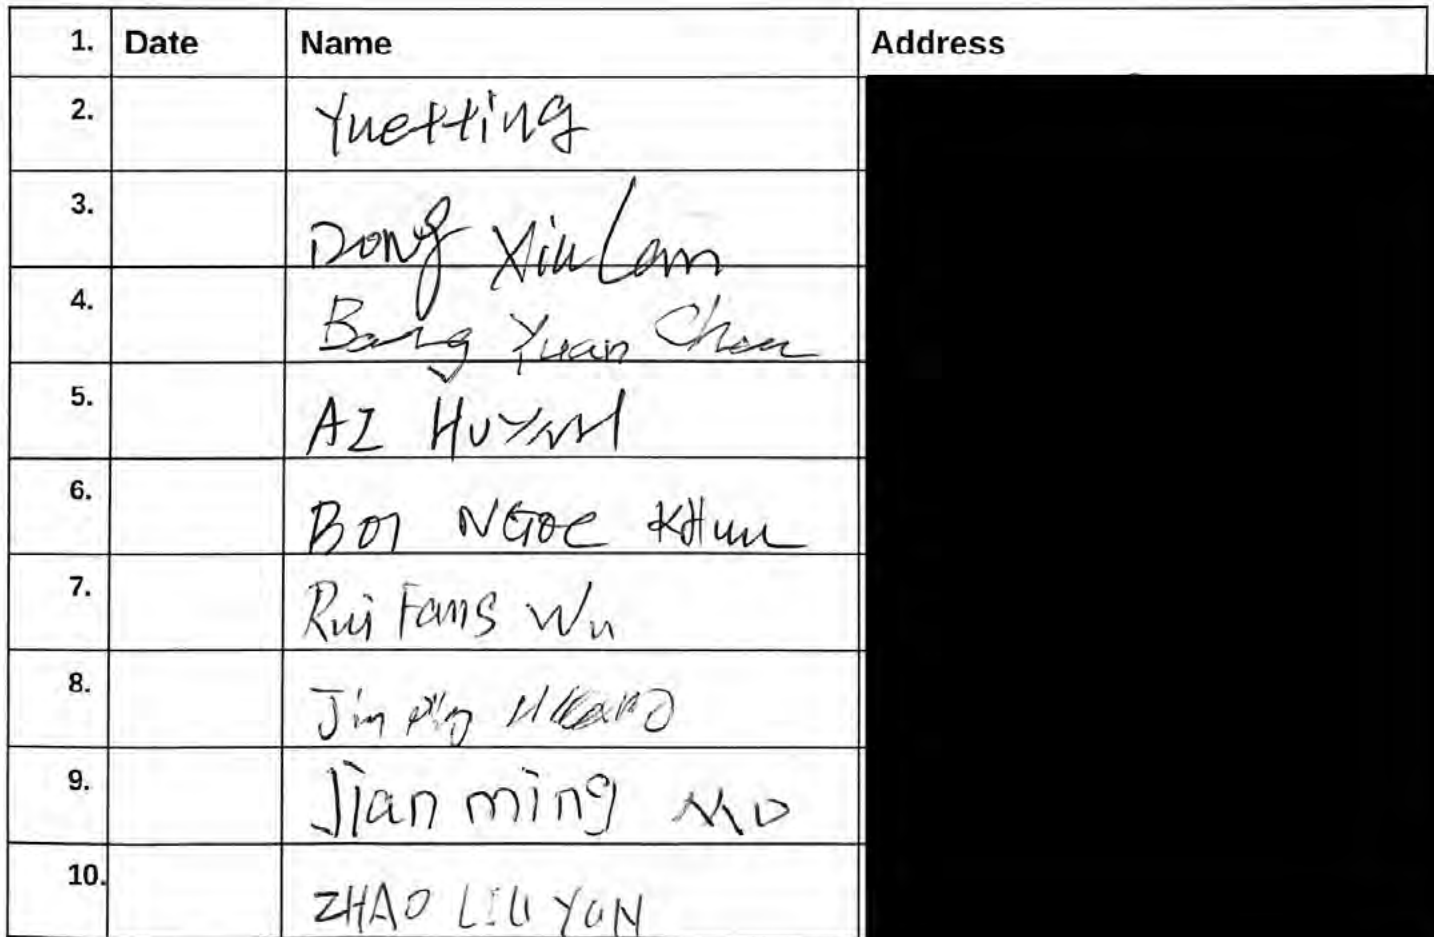 1. Date Name Address
2. Yuetting
3. Dong Xiu Lam
4. Bang Yuan Chen
5. AI HUYNH
6. BOI NGOC KHUU
7. Rui Fang Wu
8. Jin Ping
9. Jian ming MO
10. ZHAO YUN